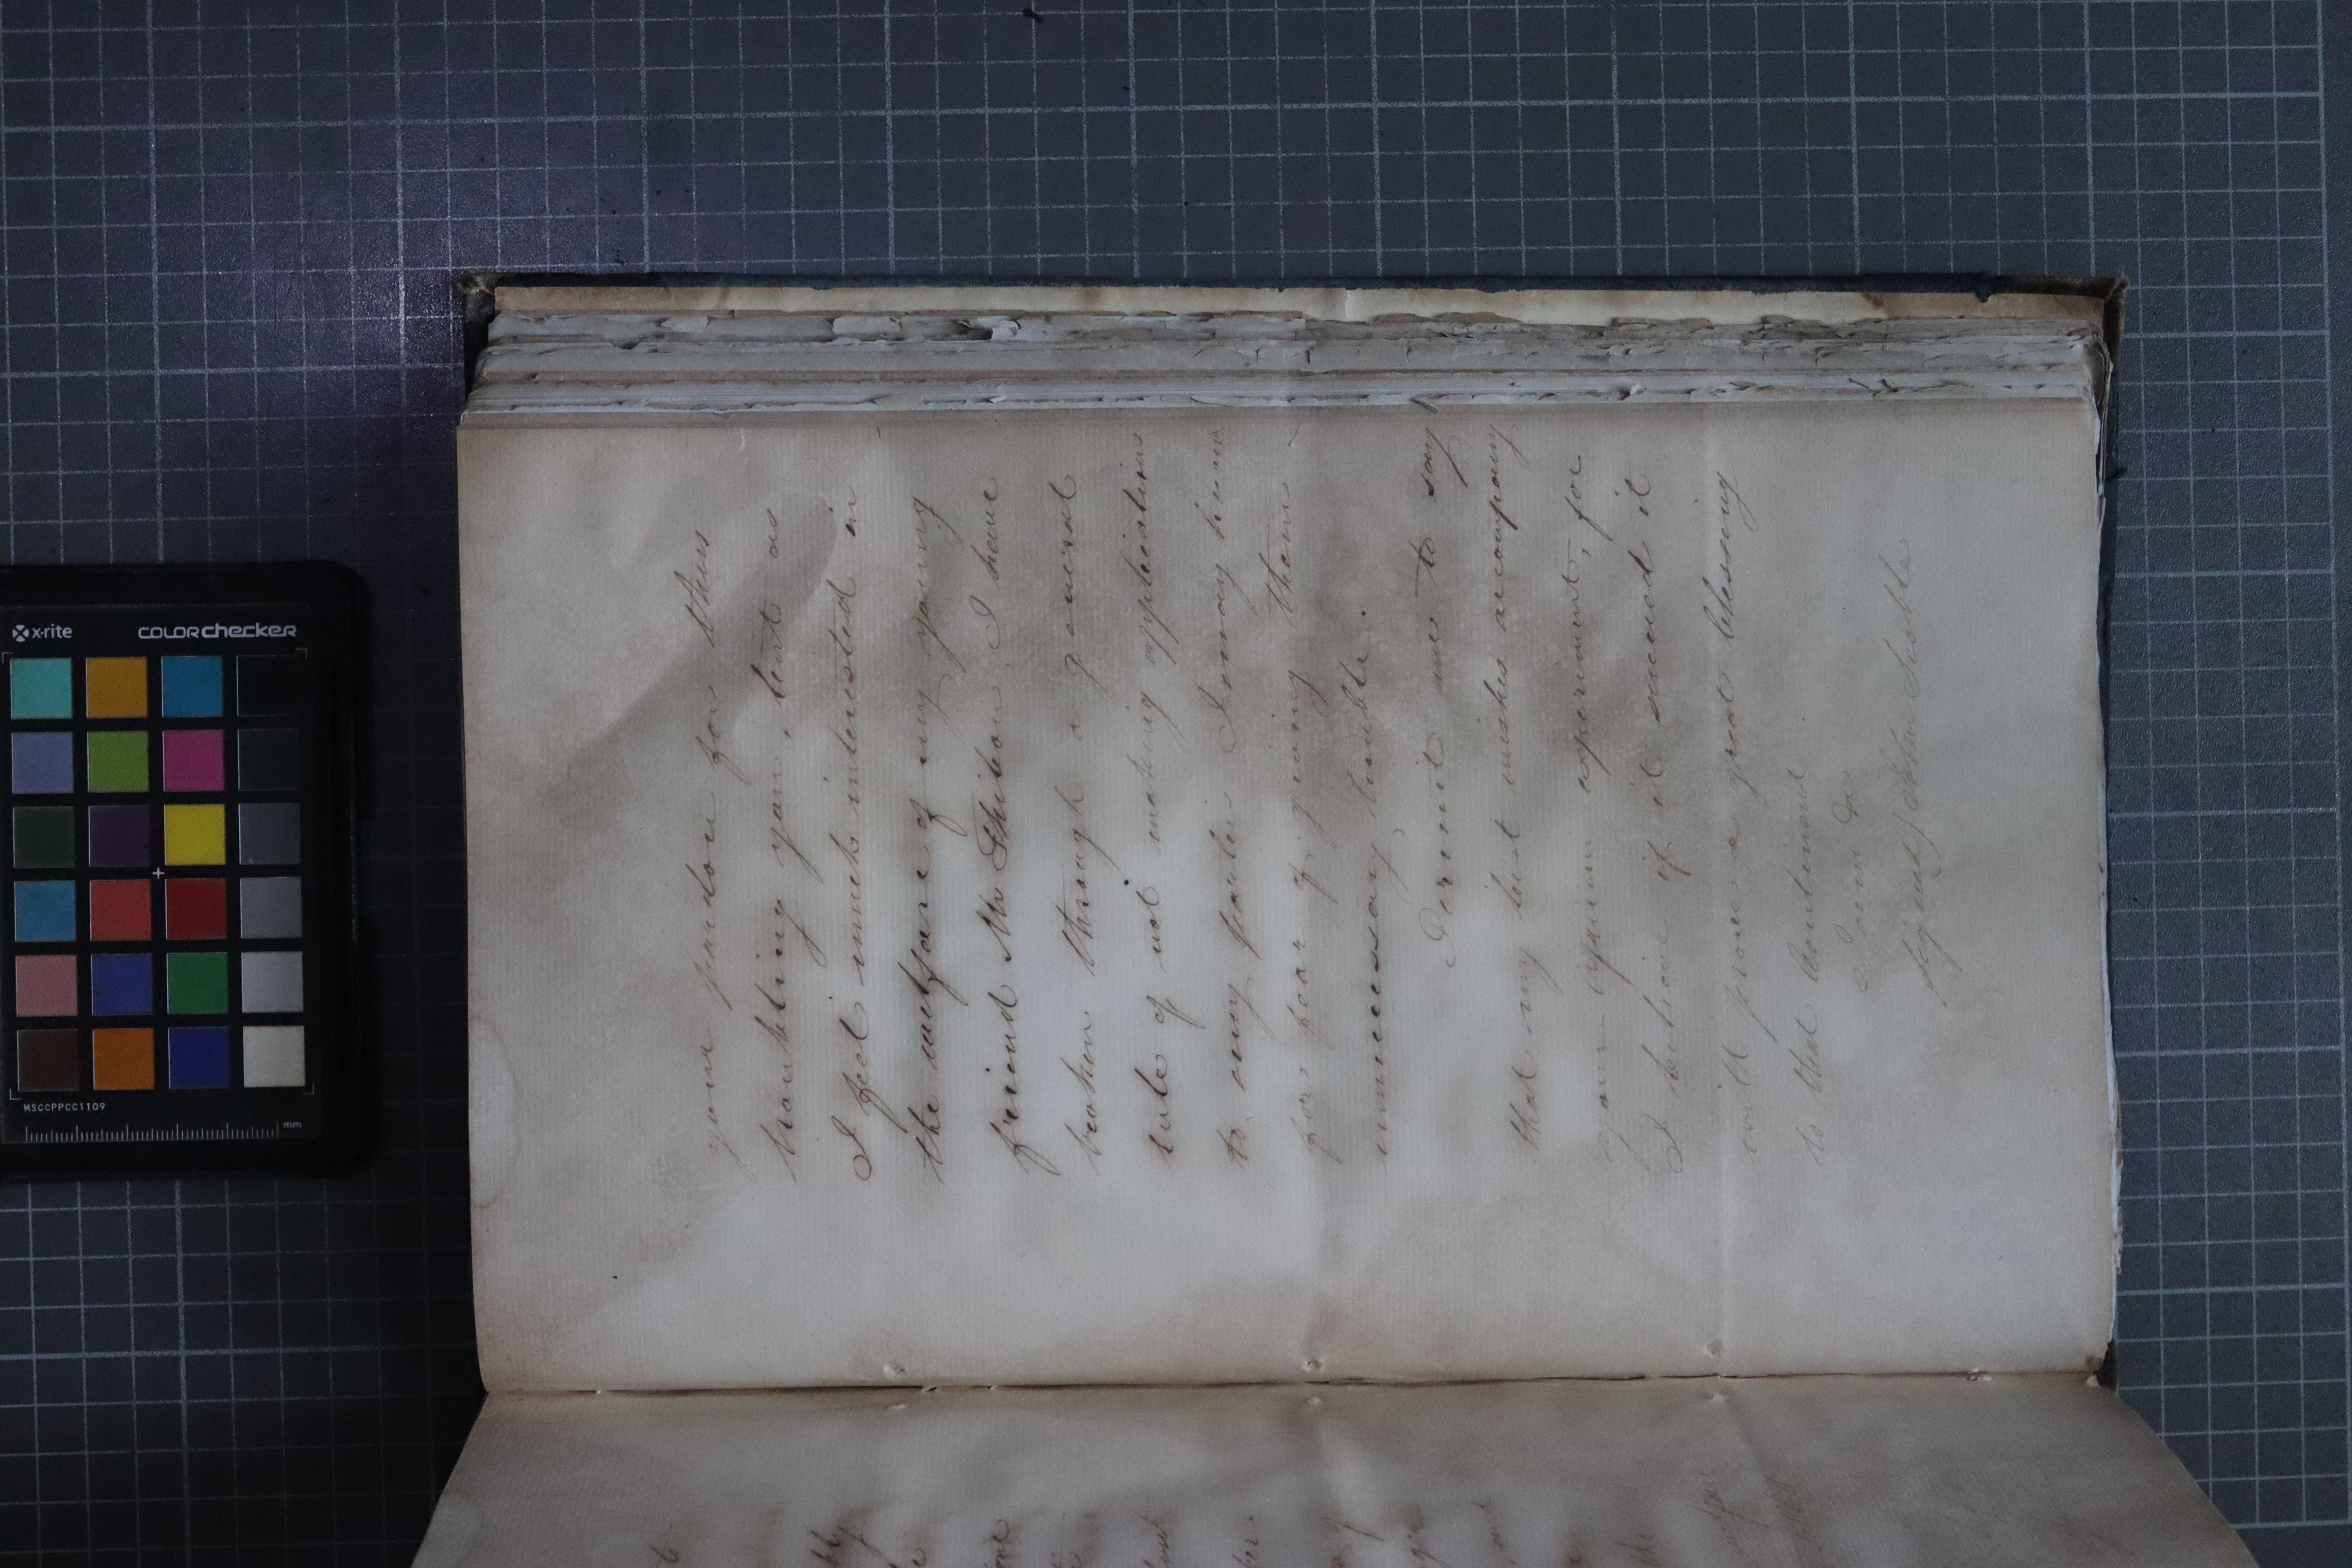 your pardon for thus
troubling you, but as
I feel much interested in
the welfare of my young
friend Mr Shitson, I have
broken through a general
rule of not making applications
to any parties I may know
for fear of giving them
unnecessary trouble.
Permit me to say
that my best wishes accompany
your experiment, for
I believe if it succeed it
will prove a great blessing
to that Continent
I am &c
signed / John Scoble
x-rite
COLORchecker
MSCCPPCC1109
mm